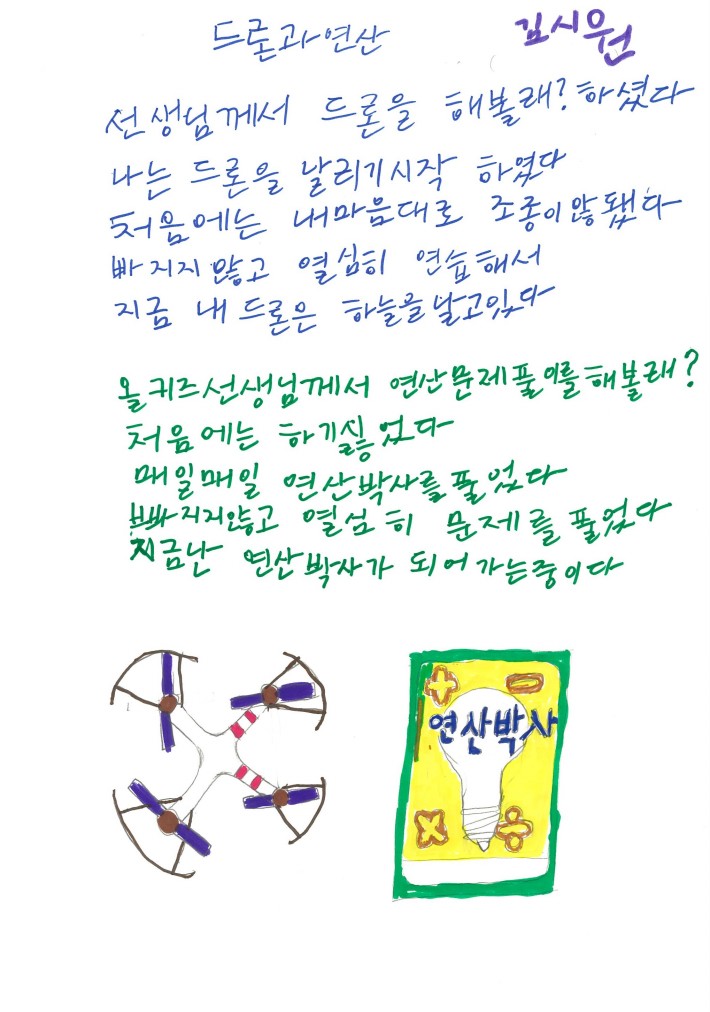 드론과연산 김시원
선생님께서 드론을 해볼래?하셨다
나는 드론을 날리기시작 하였다
처음에는 내마음대로 조종이않됐다
빠지지않고 열심히 연습해서
지금 내드론은 하늘을날고있다
올키즈선생님께서 연산문제풀이를해볼래?
처음에는 하기싫었다
매일매일 연산박사를풀었다
빠지지않고 열심히 문제를풀었다
지금난 연산박사가 되어가는중이다
+ −
연산박사
× ÷